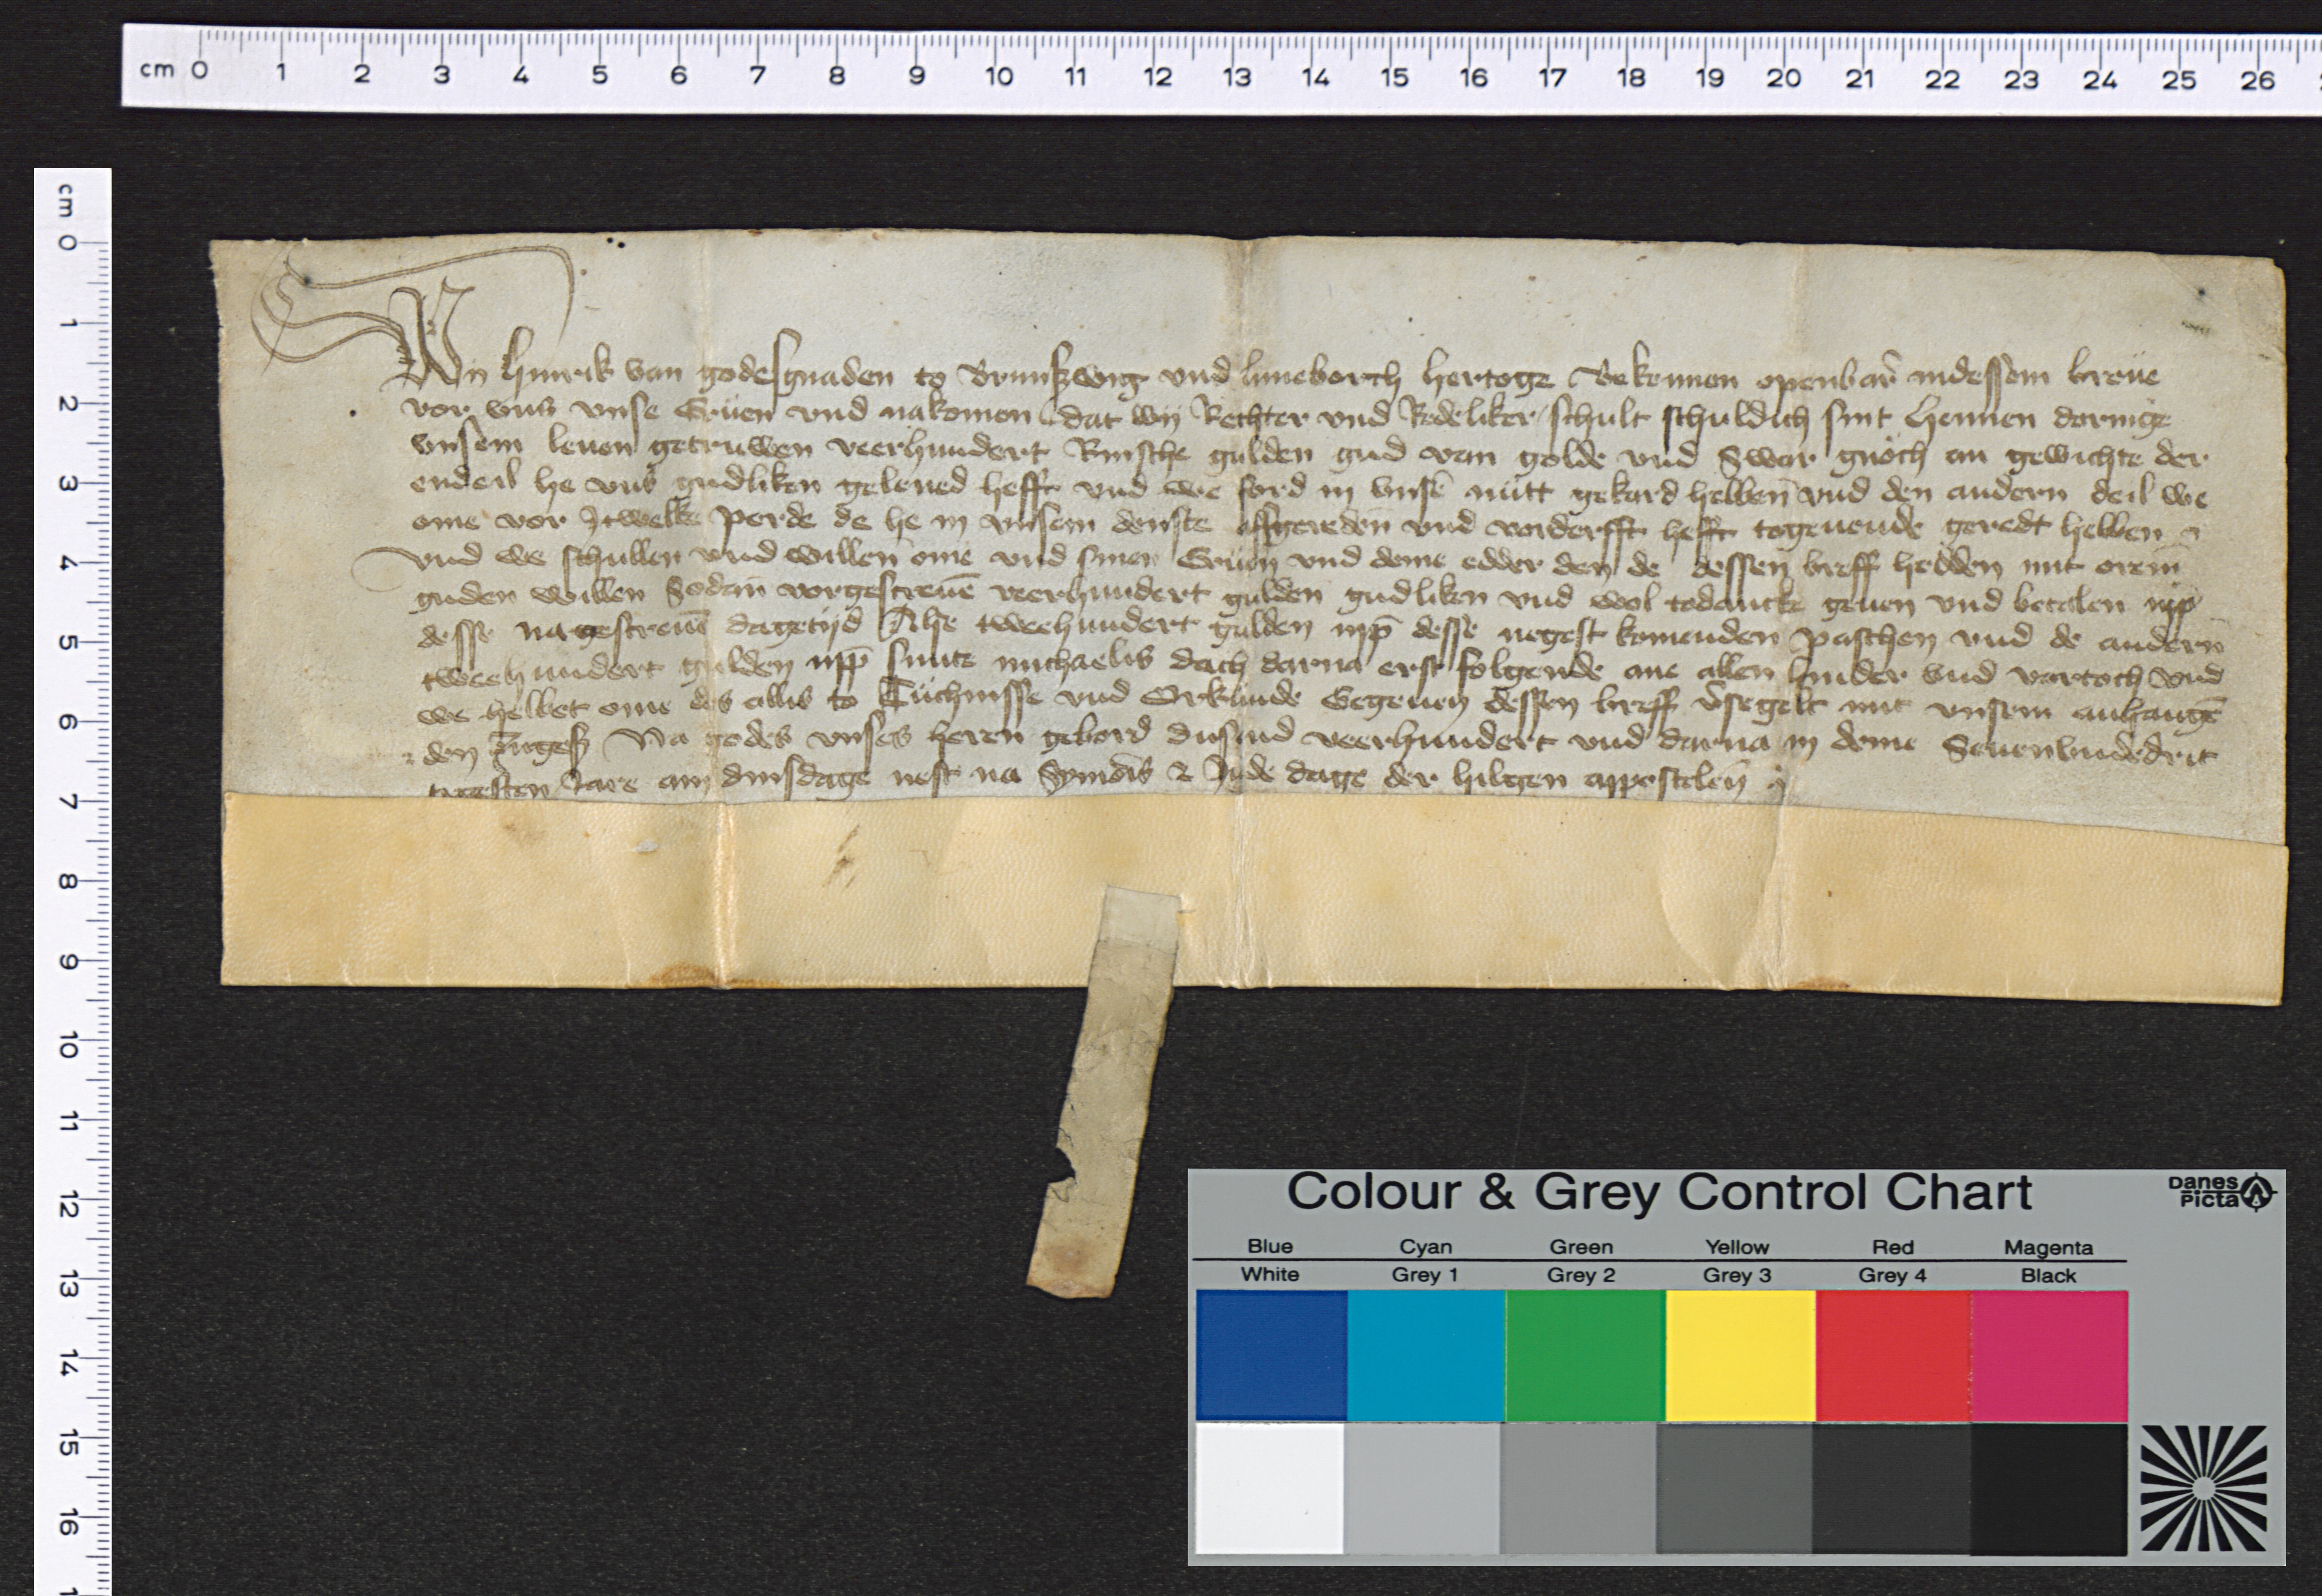 cm 0 1 2 3 4 5 6 7 8 9 10 11 12 13 14 15 16 17 18 19 20 21 22 23 24 25 26
cm 0 1 2 3 4 5 6 7 8 9 10 11 12 13 14 15 16
Wij Hinrik van godesgnaden to Brunßwig vnd luneborch hertoge Bekennen openbar indessem breue
vor vns vnse Eruen vnd nakomen dat wij Rechter vnd Redeliker schult schuldich sint Hennen dorninge
vnsem leuen getruwen veerhundert Rinsche gulden gud van golde vnd Swar gnoch an gewichte der
endeil he vns gudliken geleued hefft vnd we ford in vnse nutt gekard hebben vnd den andern deil we
ome vor Itwelke perde de he in vnsem denste affgereden vnd vorderfft hefft togeuende geredt hebben
vnd we schullen vnd willen ome vnd sinen Eruen vnd deme edder den de dessen breff hedden mit orem
guden willen Sodan vorgescreuē veerhundert gulden gudliken vnd wol todancke geuen vnd betalen vpp
desse nagescreuē dagetijd Alse tweehundert gulden vpp desse negest komenden paschen vnd de andern
tweehundert gulden vpp sunte michaelis dach darna erst folgende ane allen hinder vnd vortoch vnd
we hebbet ome des allis to Tuchnisse vnd Orkunde Gegeuen dessen breff v̄segelt mit vnsem anhangē
den Ingeß Na godes vnses heren gebord dusend veerhundert vnd darna in deme Seuenvndedrit
tigesten Jare am dinsdage nest na Symōis & Jude dage der hilgen appostelen
Colour & Grey Control Chart
Danes
Picta
Blue Cyan Green Yellow Red Magenta
White Grey 1 Grey 2 Grey 3 Grey 4 Black